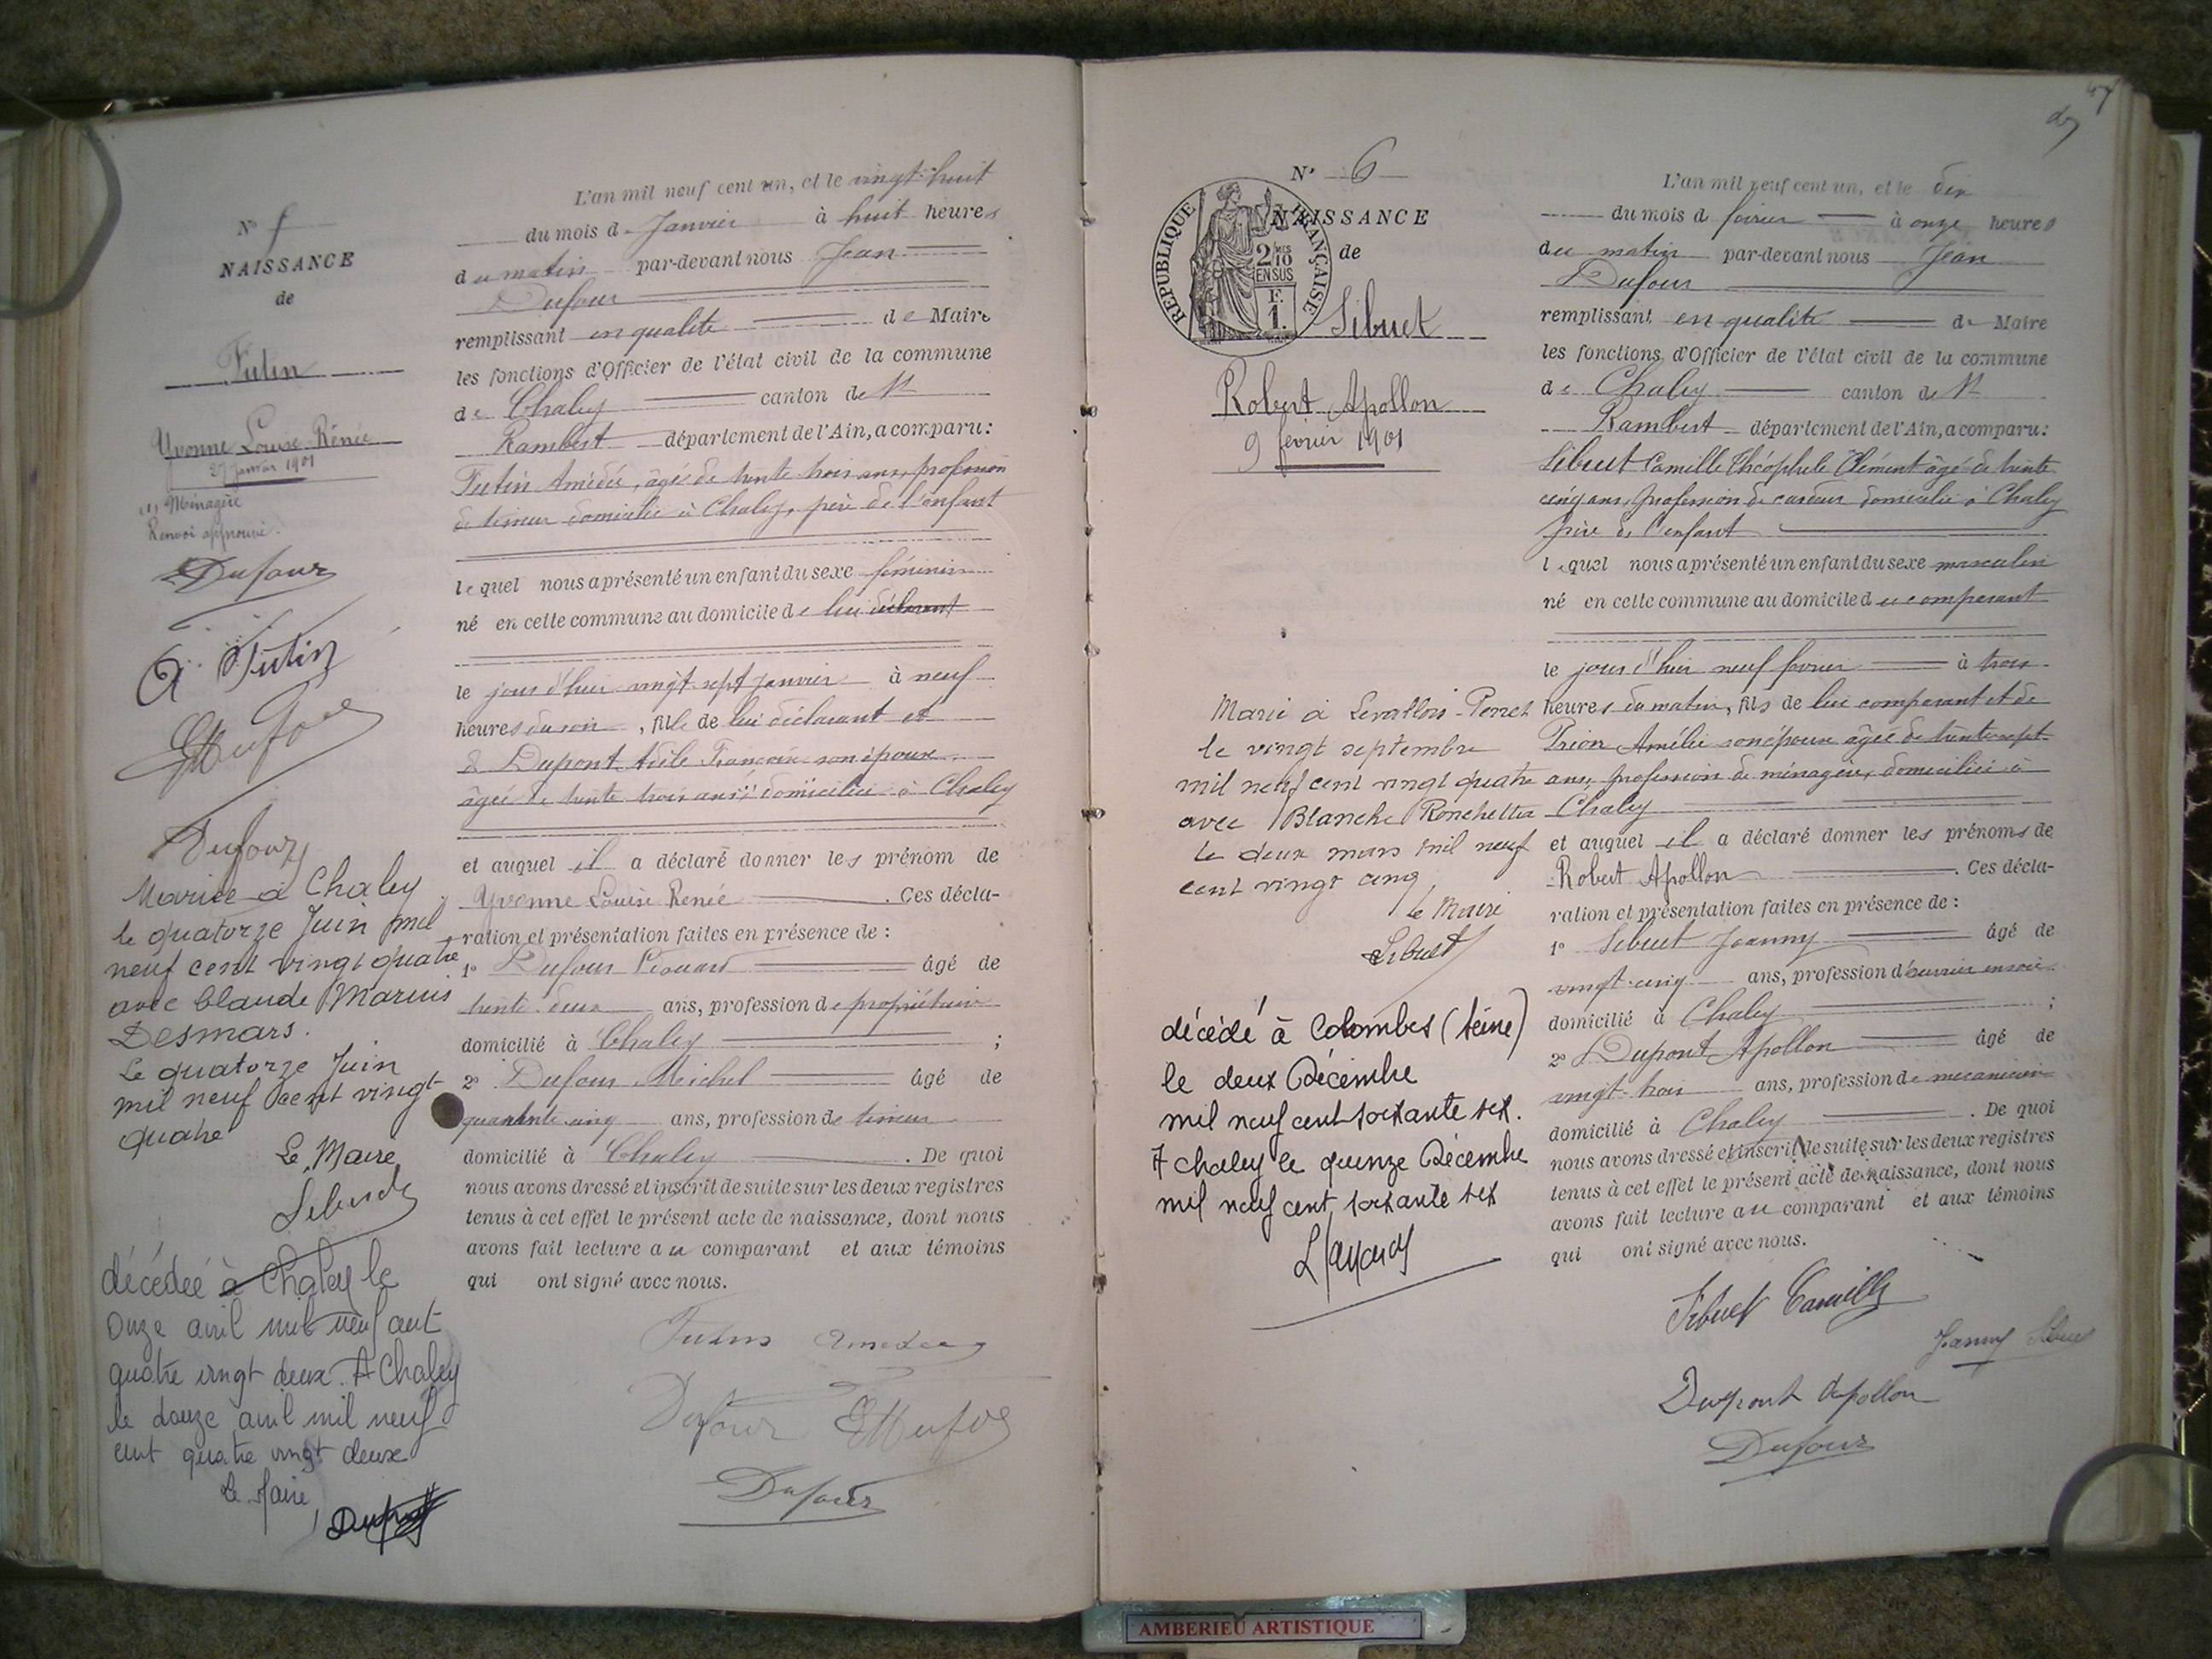 L'an mil neuf cent un, et le vingt-huit
du mois d Janvier à huit heures
du matin par-devant nous Jean
Dufour
remplissant en qualité de Maire
les fonctions d'Officier de l'état civil de la commune
de Chaley canton de St
Rambert département de l'Ain, a comparu:
Tutin Amédée, âgé de trente trois ans, profession
de tisseur domicilié à Chaley, père de l'enfant
lequel nous a présenté un enfant du sexe féminin
né en cette commune au domicile de lui déclarant
le jour d'hier vingt sept janvier à neuf
heures du soir, fille de lui déclarant et
de Dupont Adèle Françoise son épouse
âgée de trente trois ans, domiciliée à Chaley
et auquel il a déclaré donner les prénom de
Yvonne Louise Renée. Ces décla-
ration et présentation faites en présence de :
1° Dufour Léonard âgé de
trente deux ans, profession de propriétaire
domicilié à Chaley ;
2° Dufour Michel âgé de
quarante cinq ans, profession de tisseur
domicilié à Chaley. De quoi
nous avons dressé et inscrit de suite sur les deux registres
tenus à cet effet le présent acte de naissance, dont nous
avons fait lecture au comparant et aux témoins
qui ont signé avec nous.
Dufour
Dufour
N°
NAISSANCE
de
Tutin
Yvonne Louise Rénée
27 janvier 1901
(1) Ménagère
Renvoi approuvé.
Dufour
A. Tutin
Dufour
Mariée à Chaley
le quatorze Juin mil
neuf cent vingt quatre
avec Claude Marius
Desmars.
Le quatorze Juin
mil neuf cent vingt-
quatre
Le Maire
Sibuet
décédée à Chaley le
onze avril mil neuf cent
quatre vingt deux. A Chaley
le douze avril mil neuf
cent quatre vingt deux
Le Maire
N° 6
NAISSANCE
de
RÉPUBLIQUE FRANÇAISE
2/10
EN SUS
F.
1.
Sibuet
Robert Apollon
9 février 1901
Marié à Levallois-Perret
le vingt septembre
mil neuf cent vingt quatre
avec Blanche Ronchetta
le deux mars mil neuf
cent vingt cinq
Le Maire
Sibuet
décédé à Colombes (Seine)
le deux Décembre
mil neuf cent soixante six.
A chaley le quinze Décembre
mil neuf cent soixante six
L'an mil neuf cent un, et le dix
du mois d février à onze heures
du matin par-devant nous Jean
Dufour
remplissant en qualité de Maire
les fonctions d'Officier de l'état civil de la commune
de Chaley canton de St
Rambert département de l'Ain, a comparu:
Sibuet Camille Théophile Clément âgé de trente
cinq ans, profession de cardeur domicilié à Chaley
père de l'enfant
lequel nous a présenté un enfant du sexe masculin
né en cette commune au domicile du comparant
le jour d'hier neuf février à trois
heures du matin, fils de lui comparant et de
Prion Amélie son épouse âgée de trente sept
ans, profession de ménagère, domiciliée à
Chaley
et auquel il a déclaré donner les prénoms de
Robert Apollon. Ces décla-
ration et présentation faites en présence de :
1° Sibuet Joanny âgé de
vingt-cinq ans, profession d'ouvrier en soie
domicilié à Chaley ;
2° Dupont Apollon âgé de
vingt-trois ans, profession de mécanicien
domicilié à Chaley. De quoi
nous avons dressé et inscrit de suite sur les deux registres
tenus à cet effet le présent acte de naissance, dont nous
avons fait lecture au comparant et aux témoins
qui ont signé avec nous.
Sibuet Camille
Joanny Sibuet
Dupont Apollon
Dufour
AMBERIEU ARTISTIQUE